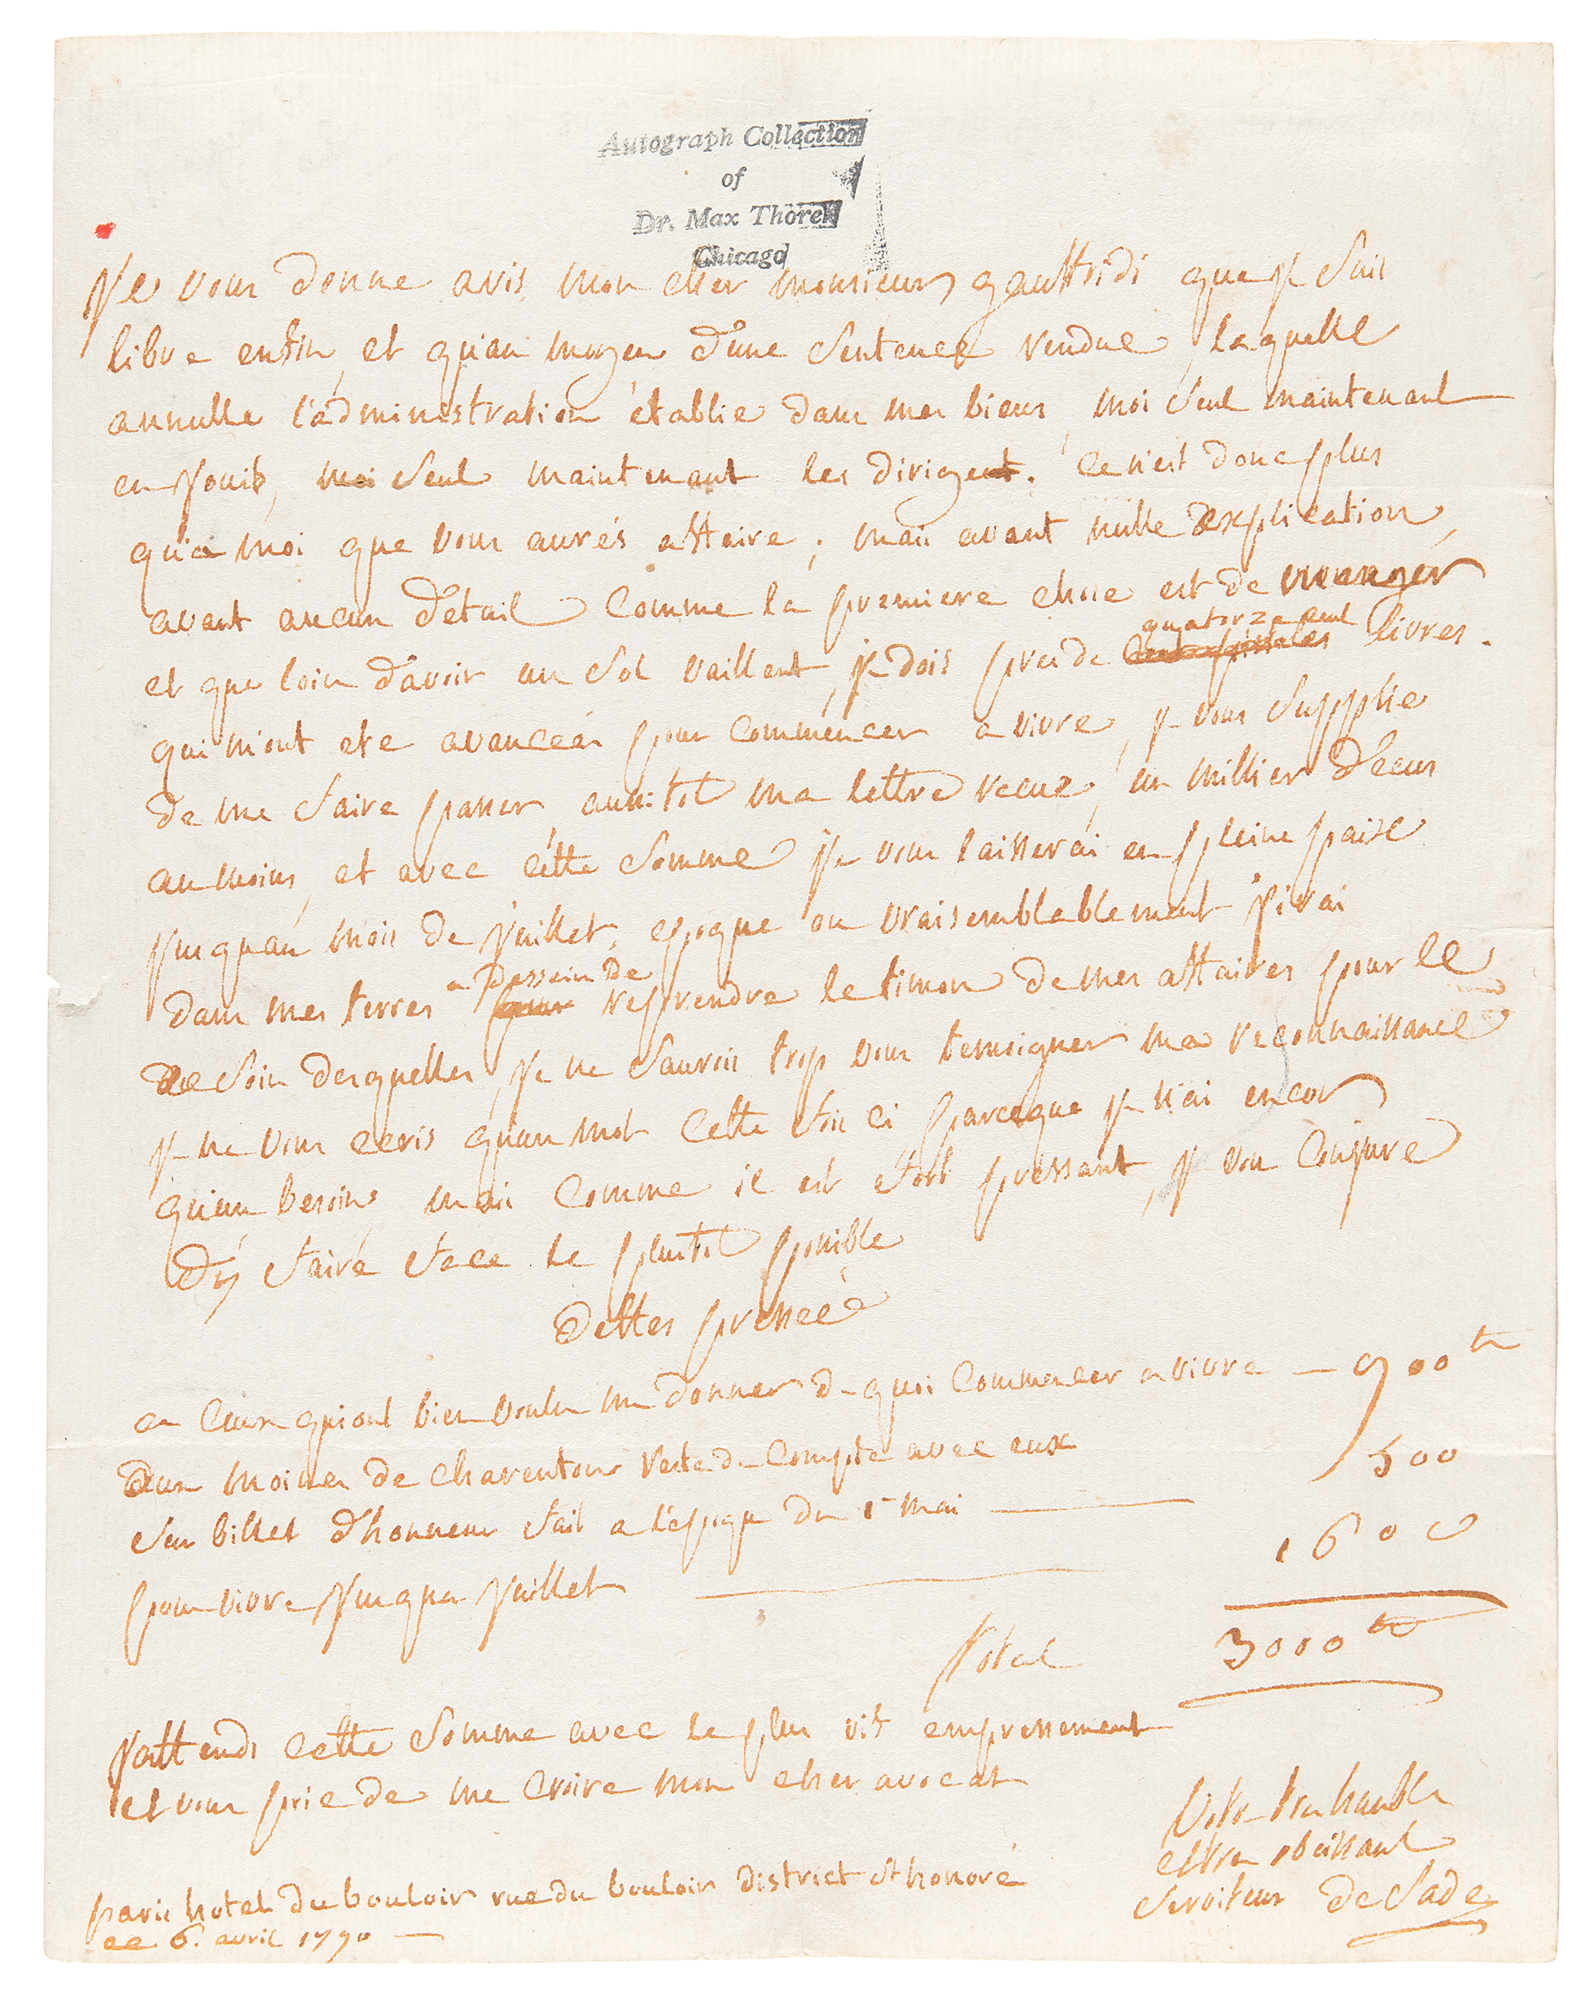 Autograph Collection
of
Dr. Max Thorek
Chicago
Je vous donne avis mon cher monsieur gauffridi que je suis
libre enfin, et qu'au moyen d'une sentence rendue, laquelle
annulle l'administration établie dans mes biens, moi seul maintenant
en jouis, moi seul maintenant les dirigent. Ce n'est donc plus
qu'a moi que vous aurés affaire; mais avant nulle explication,
avant aucun détail comme la premiere chose est de manger
et que loin d'avoir un sol vaillant, je dois pres de quatorze cent livres.
qui m'ont eté avancées pour commencer a vivre, je vous supplie
de me faire passer aussitot ma lettre recue, un millier d'écus
au moins, et avec cette somme je vous laisserai en pleine paix
jusqu'au mois de juillet, epoque ou vraisemblablement j'irai
dans mes terres a dessein de reprendre le timon de mes affaires pour le
soin desquelles, je ne saurois trop vous temoigner ma reconnaissance
je ne vous ecris qu'un mot cette fois ci parceque je n'ai encor
qu'un besoin, mais comme il est fort pressant, je vous conjure
d'y faire face le plustot possible
Dettes pressée
a ceux qui ont bien voulu me donner de quoi commencer a vivre — 900 ₶
aux moines de charenton reste de compte avec eux
sur billet d'honneur fait a l'epoque du 1er mai — 500
pour vivre jusqua juillet — 1600
Total 3000 ₶
J'attends cette somme avec le plus vif empressement
et vous prie de me croire mon cher avocat
Votre tres humble
et tres obeissant
serviteur De Sade
paris hotel du bouloir rue du bouloir district St honoré
ce 6. avril 1790 —